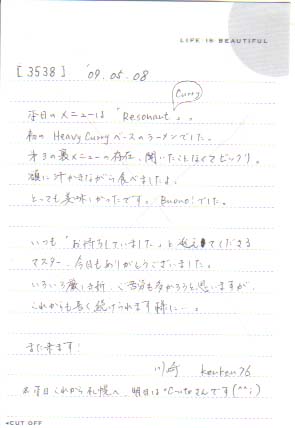 LIFE IS BEAUTIFUL
[3538] '09.05.08
Curry
本日のメニューは「Resonant」。
初の Heavy Curry ベースのラーメンでした。
裏メニューの存在、聞いたことなくてビックリ。
額に汗かきながら食べましたよ。
とっても美味しかったです。Buono! でした。
いつも「お待ちしていました」と迎えてくださる
マスター、今日もありがとうございました。
いろいろ厳しき折、ご苦労も多かろうと思いますが、
これからも長く続けられます様に…。
また来ます!
川崎 kenken76
本日これから札幌へ 明日は ℃-uteさんです(^^;)
*CUT OFF